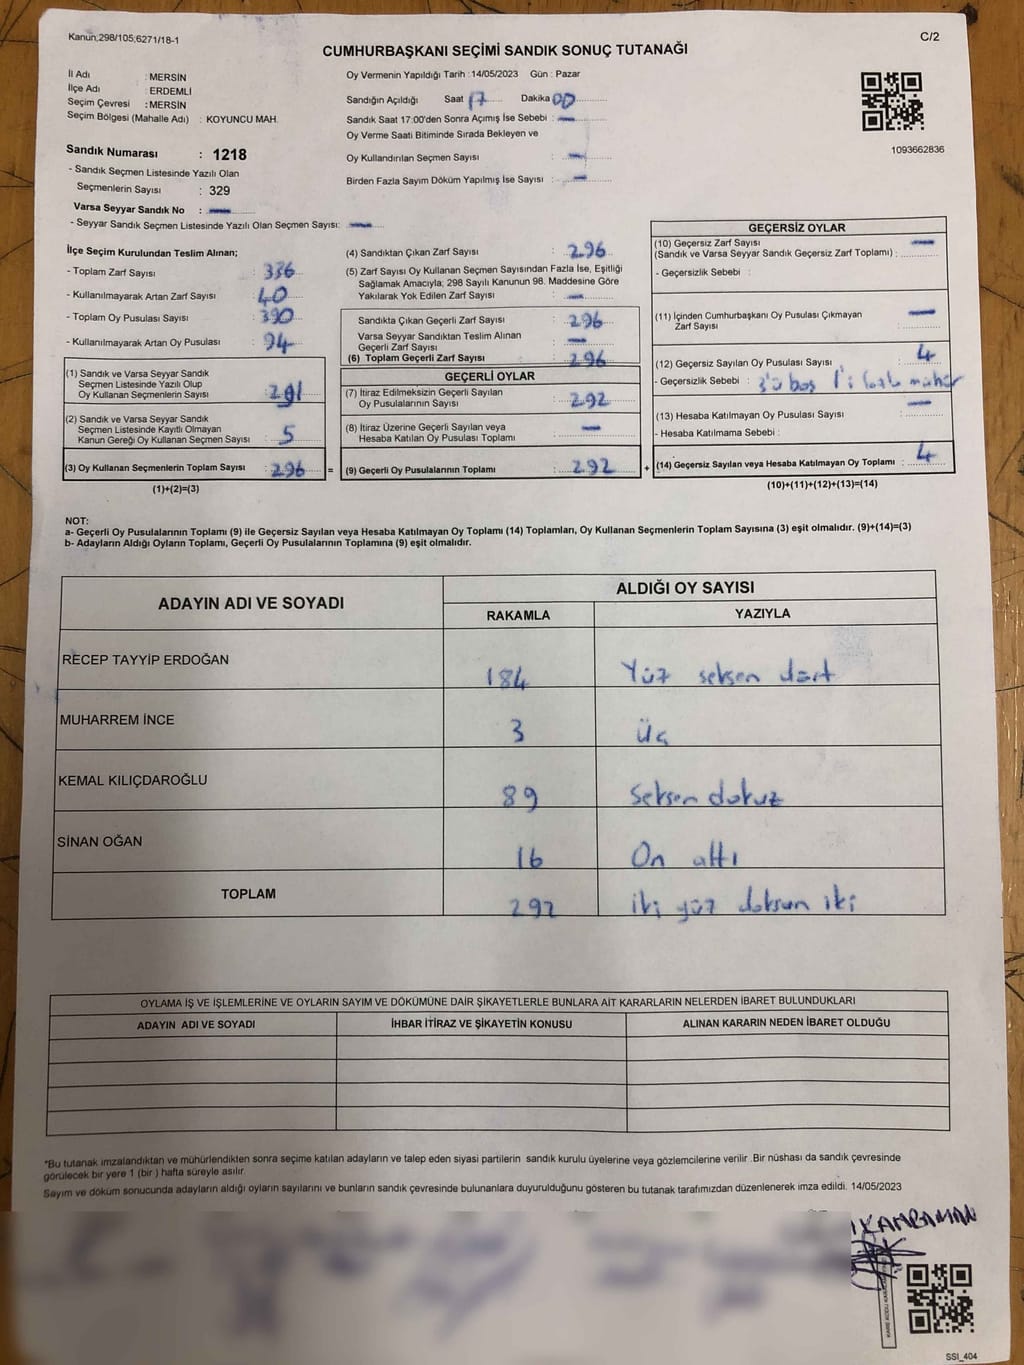 Kanun,298/105,6271/18-1
C/2
CUMHURBAŞKANI SEÇİMİ SANDIK SONUÇ TUTANAĞI
İl Adı : MERSİN
İlçe Adı : ERDEMLİ
Seçim Çevresi : MERSİN
Seçim Bölgesi (Mahalle Adı) : KOYUNCU MAH.
Oy Vermenin Yapıldığı Tarih :14/05/2023 Gün : Pazar
Sandığın Açıldığı Saat 17 Dakika 00
Sandık Saat 17:00'den Sonra Açımış İse Sebebi : —
Oy Verme Saati Bitiminde Sırada Bekleyen ve
Oy Kullandırılan Seçmen Sayısı : —
Birden Fazla Sayım Döküm Yapılmış İse Sayısı : —
1093662836
Sandık Numarası : 1218
- Sandık Seçmen Listesinde Yazılı Olan
Seçmenlerin Sayısı : 329
Varsa Seyyar Sandık No : —
- Seyyar Sandık Seçmen Listesinde Yazılı Olan Seçmen Sayısı: —
İlçe Seçim Kurulundan Teslim Alınan;
- Toplam Zarf Sayısı : 336
- Kullanılmayarak Artan Zarf Sayısı : 40
- Toplam Oy Pusulası Sayısı : 390
- Kullanılmayarak Artan Oy Pusulası : 94
(1) Sandık ve Varsa Seyyar Sandık
Seçmen Listesinde Yazılı Olup
Oy Kullanan Seçmenlerin Sayısı : 291
(2) Sandık ve Varsa Seyyar Sandık
Seçmen Listesinde Kayıtlı Olmayan
Kanun Gereği Oy Kullanan Seçmen Sayısı : 5
(3) Oy Kullanan Seçmenlerin Toplam Sayısı : 296
(1)+(2)=(3)
(4) Sandıktan Çıkan Zarf Sayısı : 296
(5) Zarf Sayısı Oy Kullanan Seçmen Sayısından Fazla İse, Eşitliği
Sağlamak Amacıyla; 298 Sayılı Kanunun 98. Maddesine Göre
Yakılarak Yok Edilen Zarf Sayısı : —
Sandıkta Çıkan Geçerli Zarf Sayısı : 296
Varsa Seyyar Sandıktan Teslim Alınan
Geçerli Zarf Sayısı : —
(6) Toplam Geçerli Zarf Sayısı : 296
GEÇERLİ OYLAR
(7) İtiraz Edilmeksizin Geçerli Sayılan
Oy Pusulalarının Sayısı : 292
(8) İtiraz Üzerine Geçerli Sayılan veya
Hesaba Katılan Oy Pusulası Toplamı : —
= (9) Geçerli Oy Pusulalarının Toplamı : 292
GEÇERSİZ OYLAR
(10) Geçersiz Zarf Sayısı —
(Sandık ve Varsa Seyyar Sandık Geçersiz Zarf Toplamı) :
- Geçersizlik Sebebi :
(11) İçinden Cumhurbaşkanı Oy Pusulası Çıkmayan
Zarf Sayısı : —
(12) Geçersiz Sayılan Oy Pusulası Sayısı : 4
- Geçersizlik Sebebi : 3'ü boş 1'i fazla mühür
(13) Hesaba Katılmayan Oy Pusulası Sayısı : —
- Hesaba Katılmama Sebebi :
+ (14) Geçersiz Sayılan veya Hesaba Katılmayan Oy Toplamı : 4
(10)+(11)+(12)+(13)=(14)
NOT:
a- Geçerli Oy Pusulalarının Toplamı (9) ile Geçersiz Sayılan veya Hesaba Katılmayan Oy Toplamı (14) Toplamları, Oy Kullanan Seçmenlerin Toplam Sayısına (3) eşit olmalıdır. (9)+(14)=(3)
b- Adayların Aldığı Oyların Toplamı, Geçerli Oy Pusulalarının Toplamına (9) eşit olmalıdır.
ADAYIN ADI VE SOYADI
ALDIĞI OY SAYISI
RAKAMLA YAZIYLA
RECEP TAYYİP ERDOĞAN 184 Yüz seksen dört
MUHARREM İNCE 3 üç
KEMAL KILIÇDAROĞLU 89 Seksen dokuz
SİNAN OĞAN 16 On altı
TOPLAM 292 iki yüz doksan iki
OYLAMA İŞ VE İŞLEMLERİNE VE OYLARIN SAYIM VE DÖKÜMÜNE DAİR ŞİKAYETLERLE BUNLARA AİT KARARLARIN NELERDEN İBARET BULUNDUKLARI
ADAYIN ADI VE SOYADI İHBAR İTİRAZ VE ŞİKAYETİN KONUSU ALINAN KARARIN NEDEN İBARET OLDUĞU
*Bu tutanak imzalandıktan ve mühürlendikten sonra seçime katılan adayların ve talep eden siyasi partilerin sandık kurulu üyelerine veya gözlemcilerine verilir .Bir nüshası da sandık çevresinde
görülecek bir yere 1 (bir ) hafta süreyle asılır.
Sayım ve döküm sonucunda adayların aldığı oyların sayılarını ve bunların sandık çevresinde bulunanlara duyurulduğunu gösteren bu tutanak tarafımızdan düzenlenerek imza edildi. 14/05/2023
SSI_404